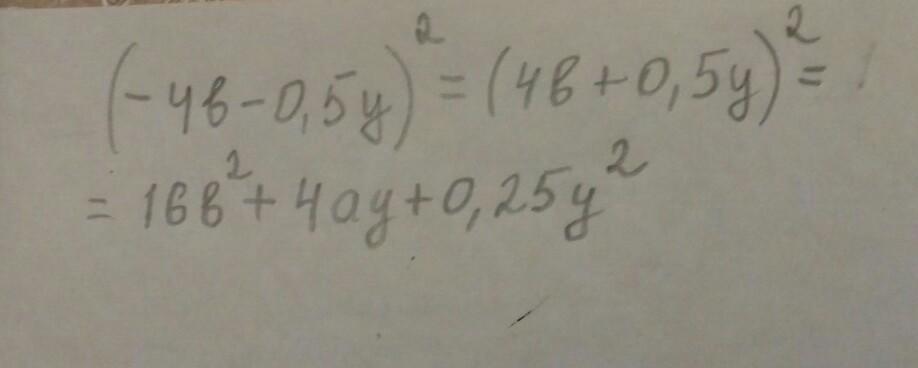 (-4в-0,5y)² = (4в+0,5y)² =
= 16в² + 4ay + 0,25y²